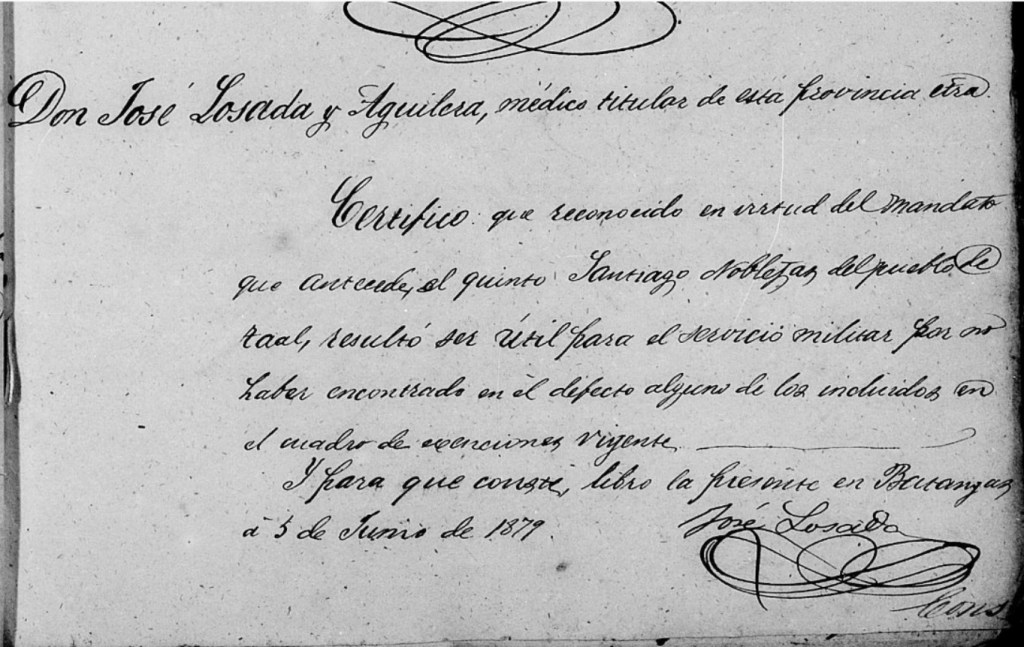 Don José Losada y Aguilera, médico titular de esta provincia etra.
Certifico que reconocido en virtud del mandato
que antecede, el quinto Santiago Noblejas del pueblo de
taal, resultó ser útil para el servicio militar por no
haber encontrado en él defecto alguno de los incluidos en
el cuadro de exenciones vigente
Y para que conste, libro la presente en Batangas
á 5 de Junio de 1879.
José Losada